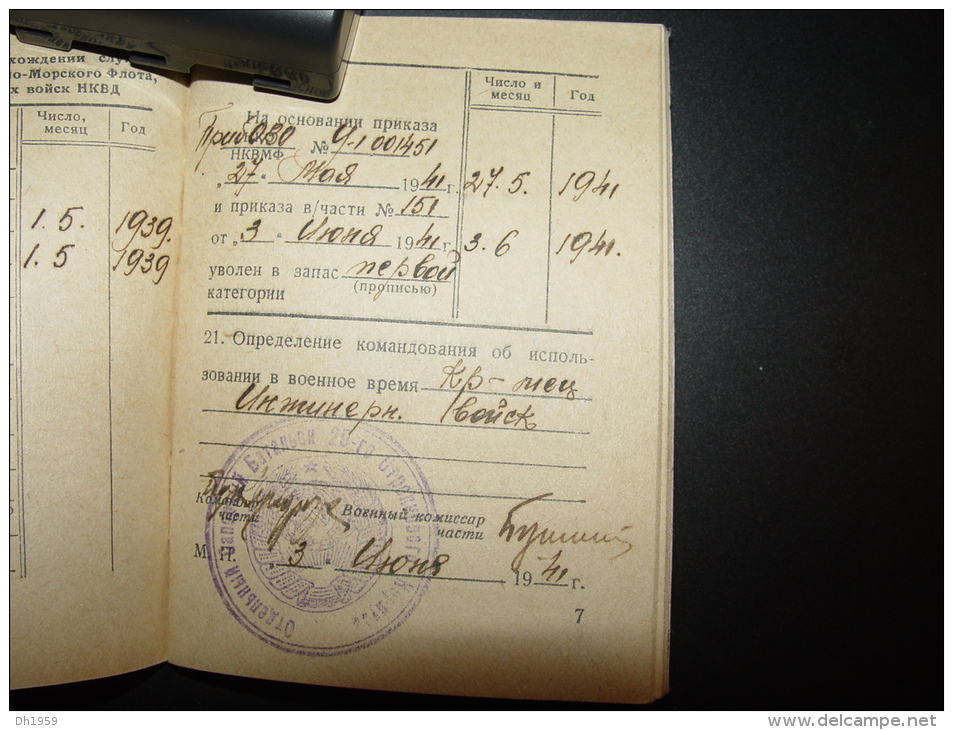 хождении служ
но-Морского Флота,
х войск НКВД
Число,
месяц
Год
1.5. 1939.
1.5 1939
Число и
месяц
Год
На основании приказа
ПрибОВО
НКВМФ №
"27" Мая 1941 г. 27.5. 1941
и приказа в/части № 151
от "3" Июня 1941 г. 3.6 1941.
уволен в запас первой
(прописью)
категории
21. Определение командования об исполь-
зовании в военное время Кр-мец
Инжинерн. войск
Командир
части
Военный комиссар
части
М. П. "3" Июня 1941 г.
7
Отдельный Батальон Стрелкового Корпуса
Dh1959
www.delcampe.net